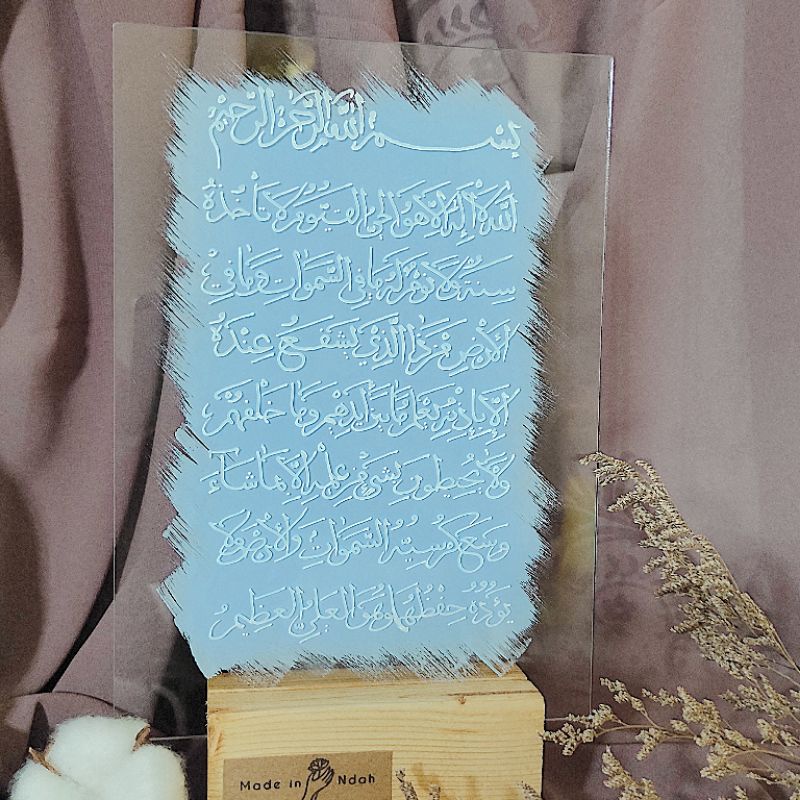 بسم الله الرحمن الرحيم
اللّٰهُ لَا إِلٰهَ إِلَّا هُوَ الْحَيُّ الْقَيُّومُ لَا تَأْخُذُهُ
سِنَةٌ وَلَا نَوْمٌ لَهُ مَا فِي السَّمٰوَاتِ وَمَا فِي
الْأَرْضِ مَنْ ذَا الَّذِي يَشْفَعُ عِنْدَهُ
إِلَّا بِإِذْنِهِ يَعْلَمُ مَا بَيْنَ أَيْدِيهِمْ وَمَا خَلْفَهُمْ
وَلَا يُحِيطُونَ بِشَيْءٍ مِنْ عِلْمِهِ إِلَّا بِمَا شَاءَ
وَسِعَ كُرْسِيُّهُ السَّمٰوَاتِ وَالْأَرْضَ وَلَا
يَؤُدُهُ حِفْظُهُمَا وَهُوَ الْعَلِيُّ الْعَظِيمُ
Made in Ndah